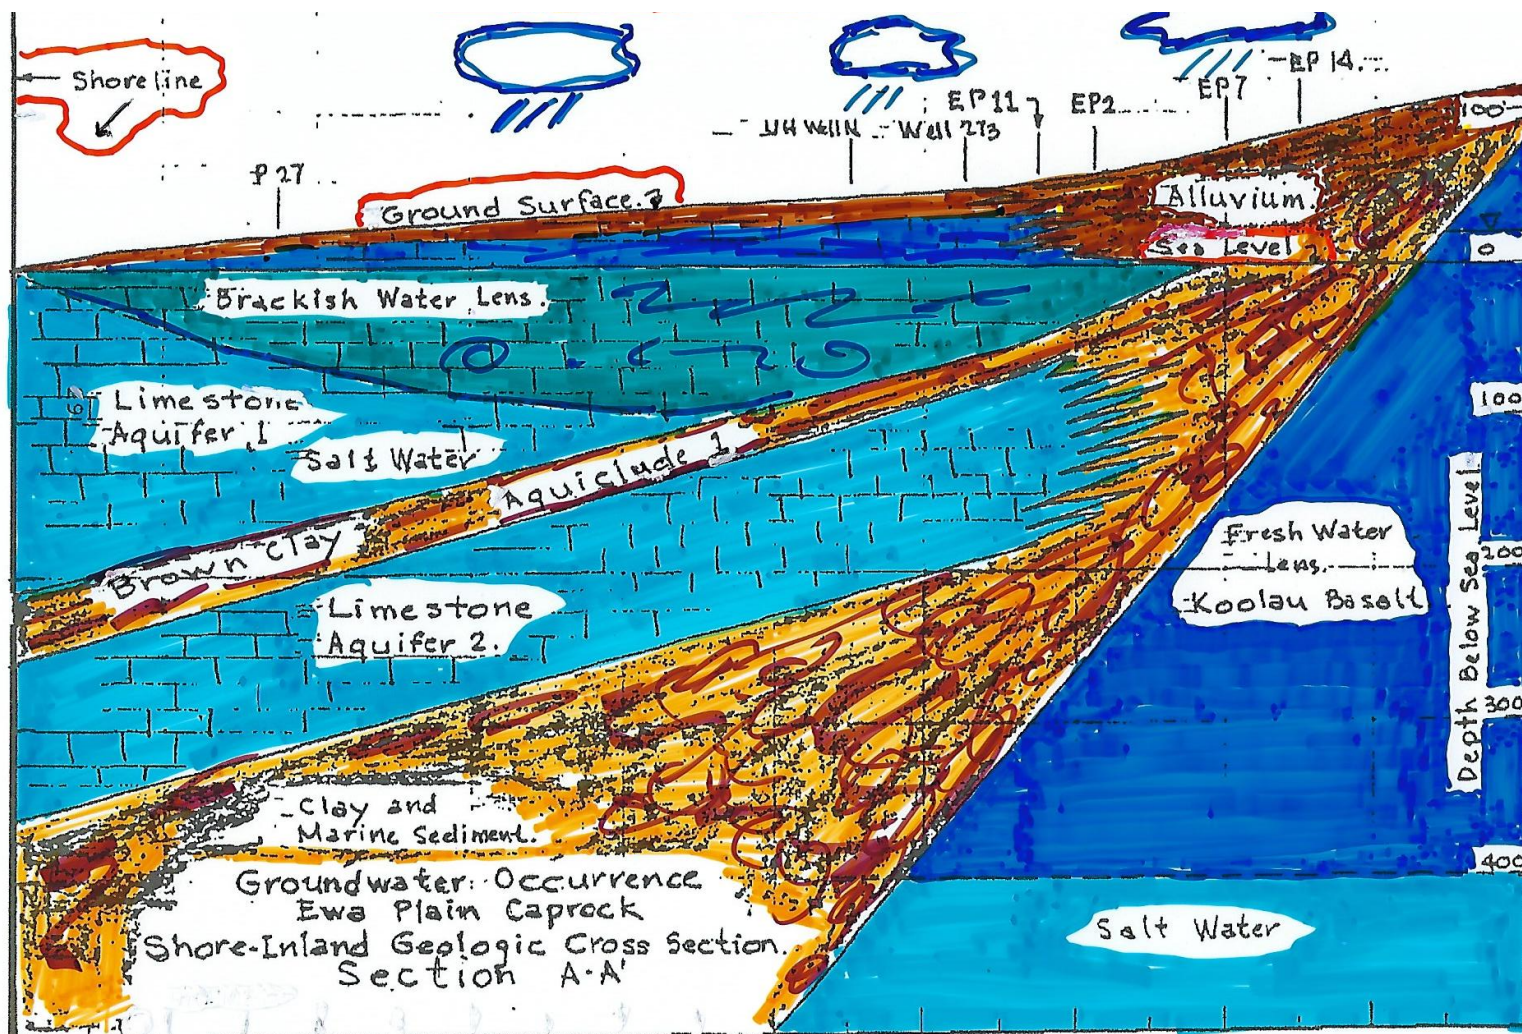 Shoreline
EP 14.
EP7
EP 11
EP2
Well 273
P 27
100
Ground Surface.
Alluvium.
Sea Level
0
Brackish Water Lens.
Limestone
Aquifer 1
Salt Water
100
Aquiclude 1
Brown Clay
Fresh Water
Lens.
Koolau Basalt
200
Depth Below Sea Level
Limestone
Aquifer 2.
300
Clay and
Marine Sediment.
400
Groundwater: Occurrence
Ewa Plain Caprock
Shore-Inland Geologic Cross Section.
Section A-A'
Salt Water